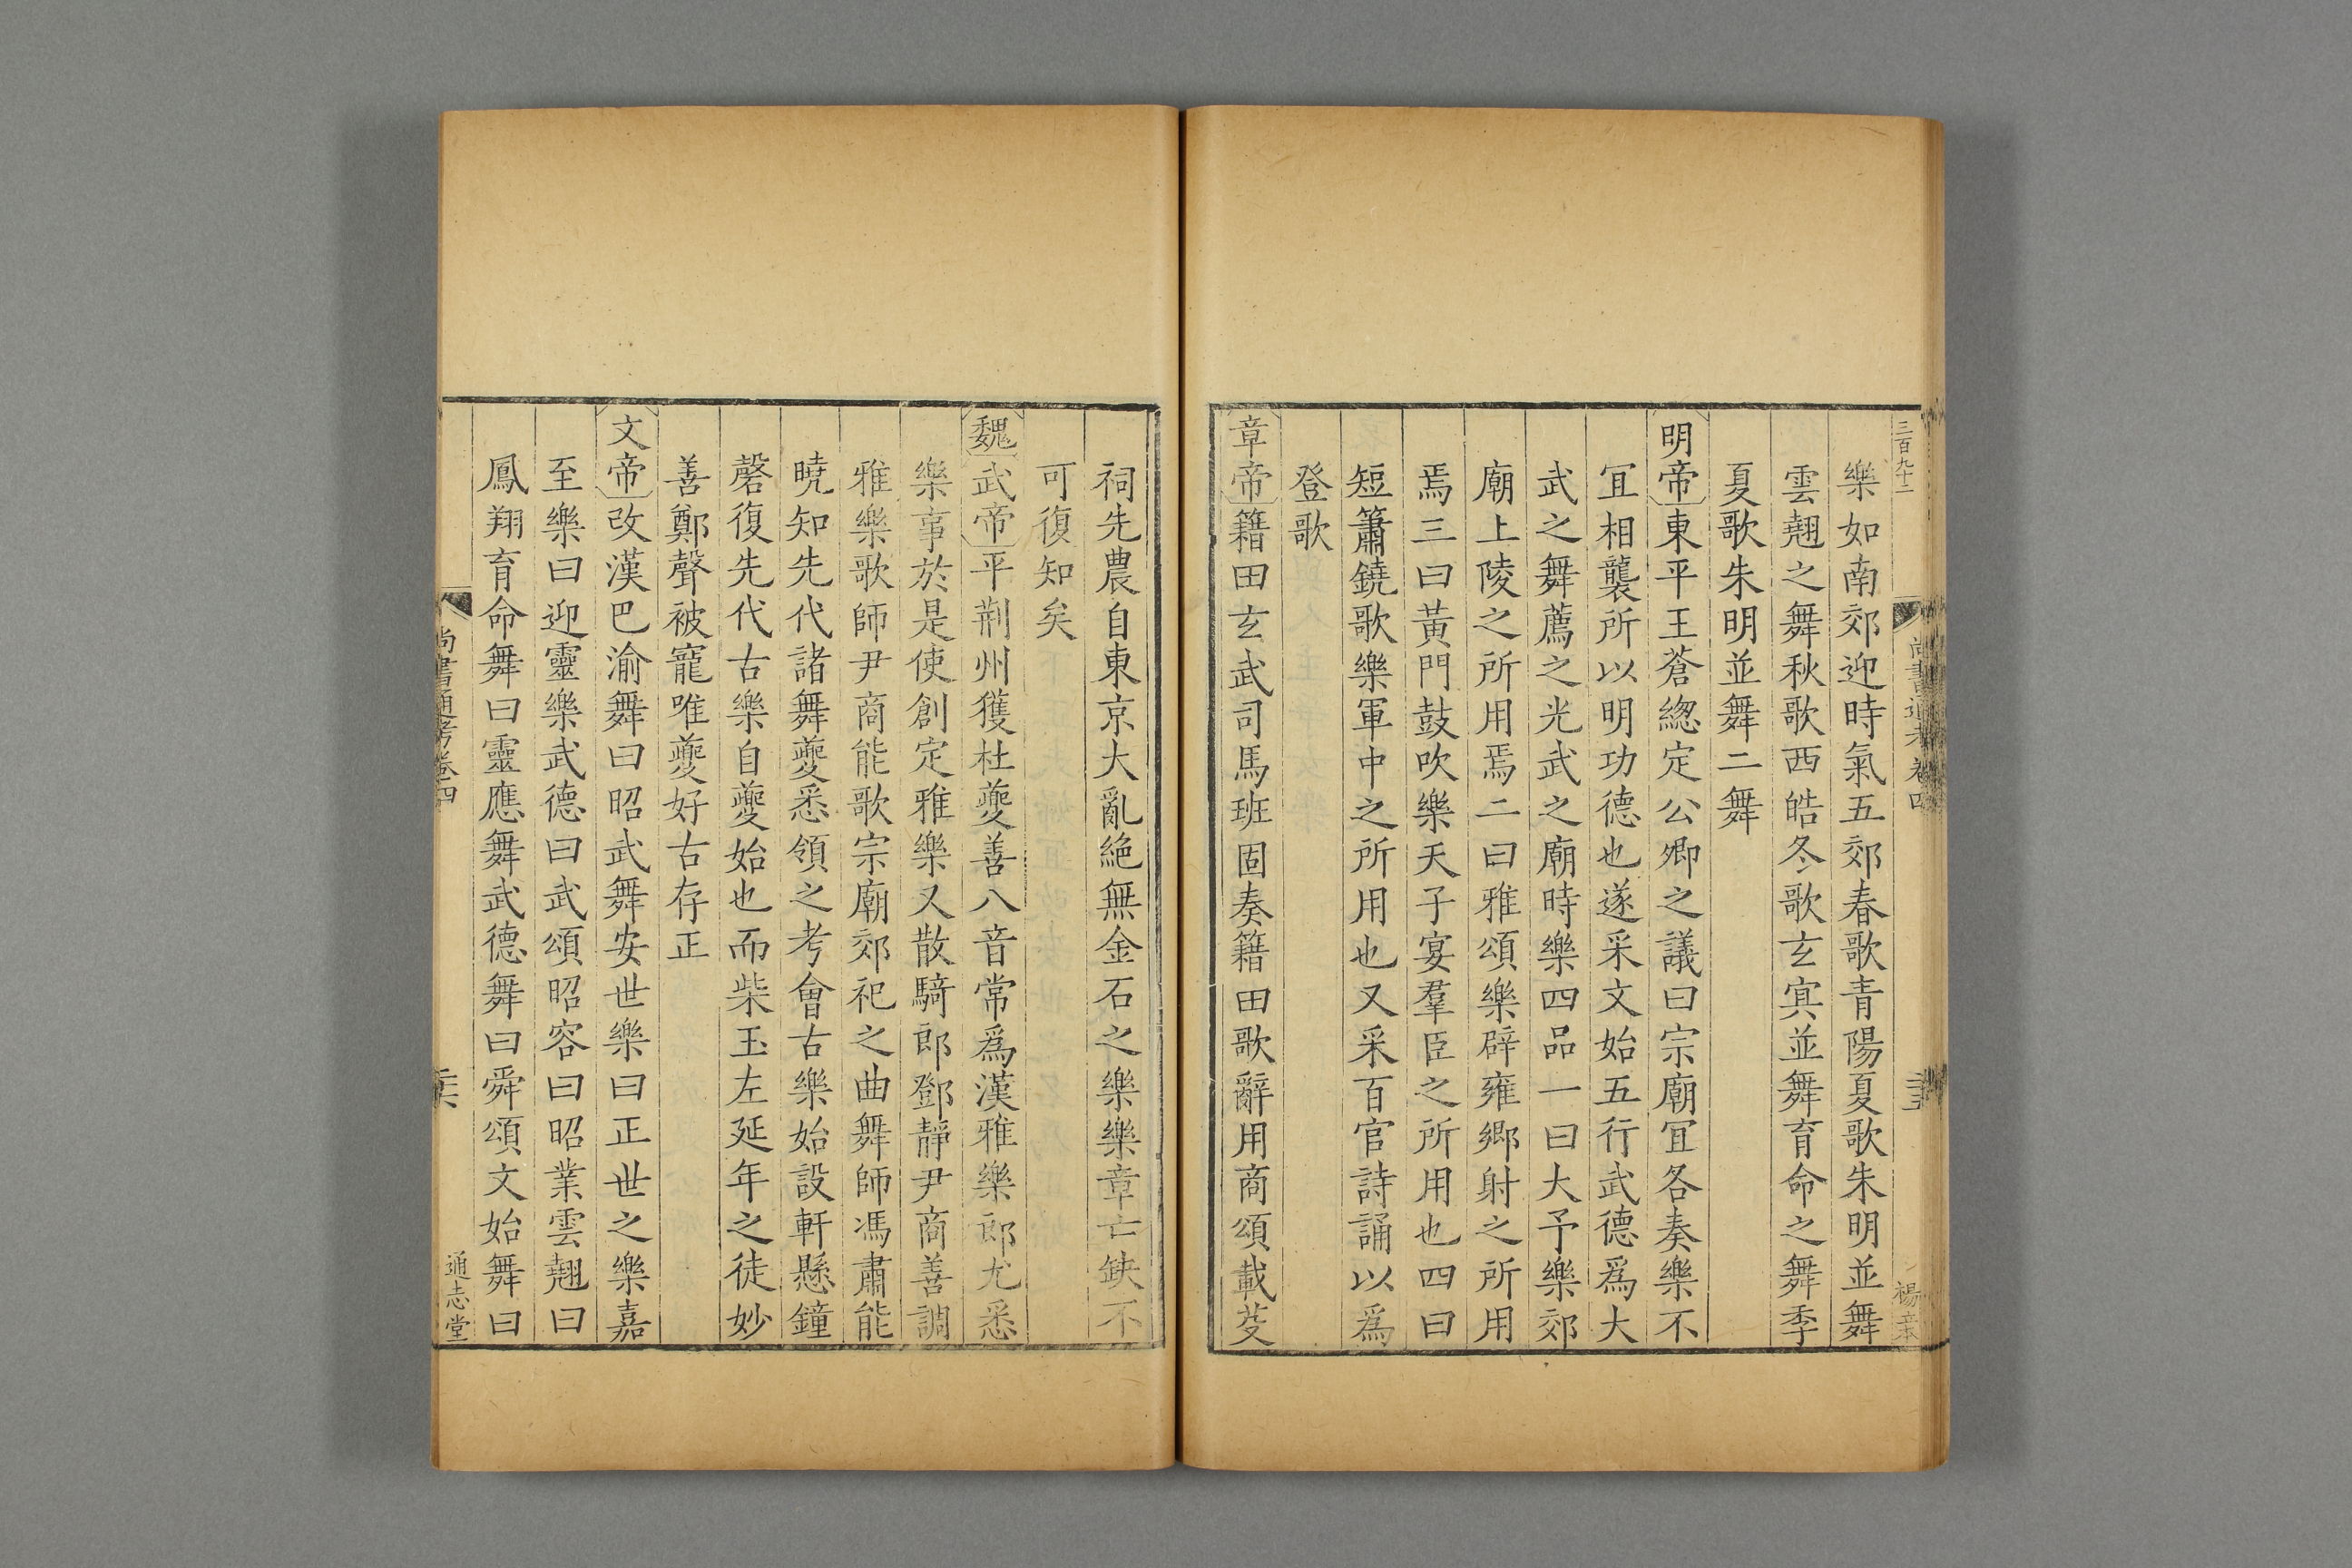 三百九十二
樂如南郊迎時氣五郊春歌青陽夏歌朱明並舞
雲翹之舞秋歌西皓冬歌玄㝠並舞育命之舞季
夏歌朱明並舞二舞
明帝東平王蒼緫定公卿之議曰宗廟冝各奏樂不
冝相襲所以明功德也遂采文始五行武德爲大
武之舞薦之光武之廟時樂四品一曰大予樂郊
廟上陵之所用焉二曰雅頌樂辟雍鄉射之所用
焉三曰黃門鼓吹樂天子宴羣臣之所用也四曰
短簫鐃歌樂軍中之所用也又采百官詩誦以爲
登歌
章帝籍田玄武司馬班固奏籍田歌辭用商頌載芟
祠先農自東京大亂絶無金石之樂樂章亡缺不
可復知矣
魏武帝平荆州獲杜夔善八音常爲漢雅樂郎尤悉
樂事於是使創定雅樂又散騎郎鄧靜尹商善調
雅樂歌師尹商能歌宗廟郊祀之曲舞師馮肅能
曉知先代諸舞夔悉領之考會古樂始設軒懸鐘
磬復先代古樂自夔始也而柴玉左延年之徒妙
善鄭聲被寵唯夔好古存正
文帝改漢巴渝舞曰昭武舞安世樂曰正世之樂嘉
至樂曰迎靈樂武德曰武頌昭容曰昭業雲翹曰
鳳翔育命舞曰靈應舞武德舞曰舜頌文始舞曰
尚書通考卷四
通志堂